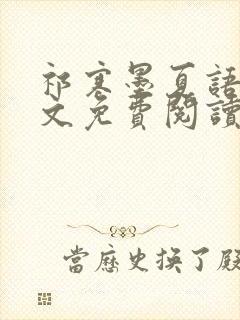 祁寒墨夏語
文免費閱讀
當歷史換了殿